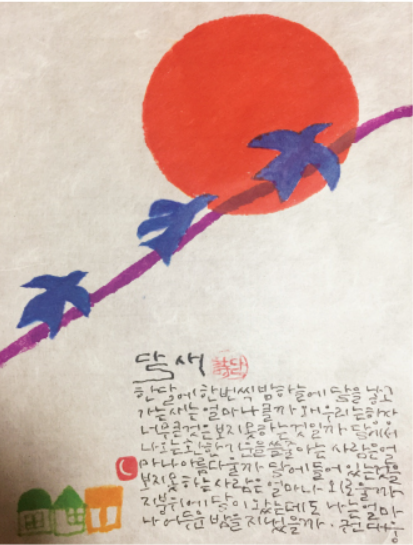 달새
한달에 한번씩 밤하늘에 달을 낳고
가는 새는 얼마나 클까 왜 우리는 항상
너무 큰 것은 보지 못하는 것일까 달에서
나오는 환한 기운을 아는 사람은 얼
마나 아름다울까 달에 들어 있는 것을
보지 못하는 사람은 얼마나 외로울까
지붕위에 달이 있는데도 나는 얼마
나 어두운 밤을 권대웅